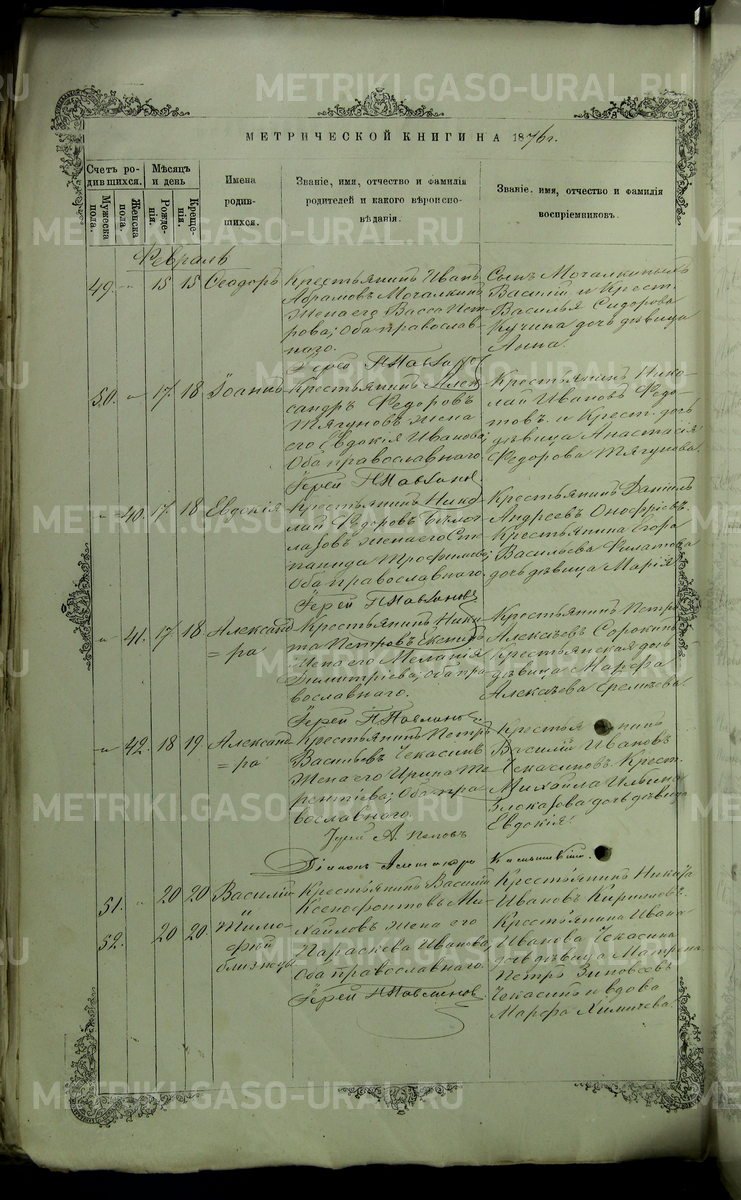 МЕТРИЧЕСКОЙ КНИГИ НА 1876 г.
Счетъ родившихся.
Мужеска пола.
Женска пола.
Мѣсяцъ и день
Рожденія.
Крещенія.
Имена родившихся.
Званіе, имя, отчество и фамилія родителей и какого вѣроисповѣданія.
Званіе, имя, отчество и фамилія воспріемниковъ.
Февраль
49. „ 15 15 Ѳеодоръ
Крестьянинъ Иванъ
Абрамовъ Мочалкинъ
жена его Васса Пет-
рова; Оба православ-
наго.
Іерей Н Павлинов
Сынъ Мочалкинымъ
Василій и Крест.
Василья Сидорова
Кучина дочь дѣвица
Анна.
50. „ 17. 18 Іоаннъ
Крестьянинъ Алек-
сандръ Федоровъ
Тягуновъ жена
его Евдокія Иванова;
Оба православнаго.
Іерей Н Павлинов
Крестьянинъ Нико-
лай Ивановъ Федо-
товъ и Крест. дочь
дѣвица Анастасія
Федорова Тягунова.
„ 40. 17. 18 Евдокія
Крестьянинъ Нико-
лай Федоровъ
жена его Сте-
панида Трофимова;
Оба православнаго.
Іерей Н Павлиновъ
Крестьянинъ Даніилъ
Андреевъ Онофріевъ.
Крестьянина Егора
Васильева Филатова
дочь дѣвица Марія.
„ 41. 17 18 Александ
= ра
Крестьянинъ Ники-
та Петровъ
Жена его Меланія
Димитріева; Оба пра-
вославнаго.
Іерей Н Павлинов
Крестьянинъ Петръ
Алексѣевъ Сорокинъ
крестьянская дочь
дѣвица Марфа
Алексѣева
„ 42. 18 19 Александ
= ра
Крестьянинъ Петръ
Васильевъ Чекасинъ
Жена его Ирина Те-
рентіева; Оба пра-
вославнаго.
А. Поповъ
Діаконъ
Крестьянинъ
Василій Ивановъ
Чекасинъ. Крест.
Михаила Ильина
Злоказова дочь дѣвица
Евдокія.
51. „ 20 20 Василій
52. 20 20. Тимо-
фей
близнецы
Крестьянинъ Василій
Ксенофонтовъ Ми-
хайловъ жена его
Параскева Иванова;
Оба православнаго.
Іерей Н Павлинов
Крестьянинъ Никита
Ивановъ Кириловъ.
Крестьянина Ивана
Иванова Чекасина
дочь дѣвица Матрена
Петръ Зиновеевъ
Чекасинъ и вдова
Марфа
METRIKI.GASO-URAL.RU